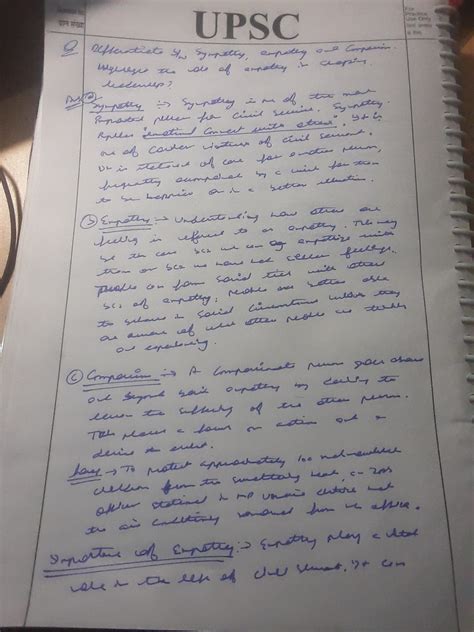 UPSC
For
Practice
Use Only
Q Differentiate b/w Sympathy, empathy and Compassion.
Highlight the role of empathy in shaping
leadership?
Ans: (a) Sympathy :- Sympathy is one of the most
Important pillar for Civil Service. Sympathy
"emotional Connect with others". It is
one of virtues of Civil Servant.
It is of care for another person,
frequently accompanied by a wish for them
to be happier or in a better situation.
(b) Empathy :- Understanding how others are
feeling is referred to as empathy. This may
be the case bcs we can empathize with
them or bcs we have had similar feelings.
People can form Social ties with others
bcs of empathy. People are better able
to behave in Social Circumstances when they
are aware of what other people are
and experiencing.
(c) Compassion :- A Compassionate person goes above
and beyond by
the suffering of the other person.
This places a focus on action and a
desire to
:- To protect approximately 100 malnourished
children from the heat, an
officer stationed in MP
the air Conditioning removed from his office.
Importance of Empathy :- Empathy plays a vital
role in the life of Civil Servant. It can